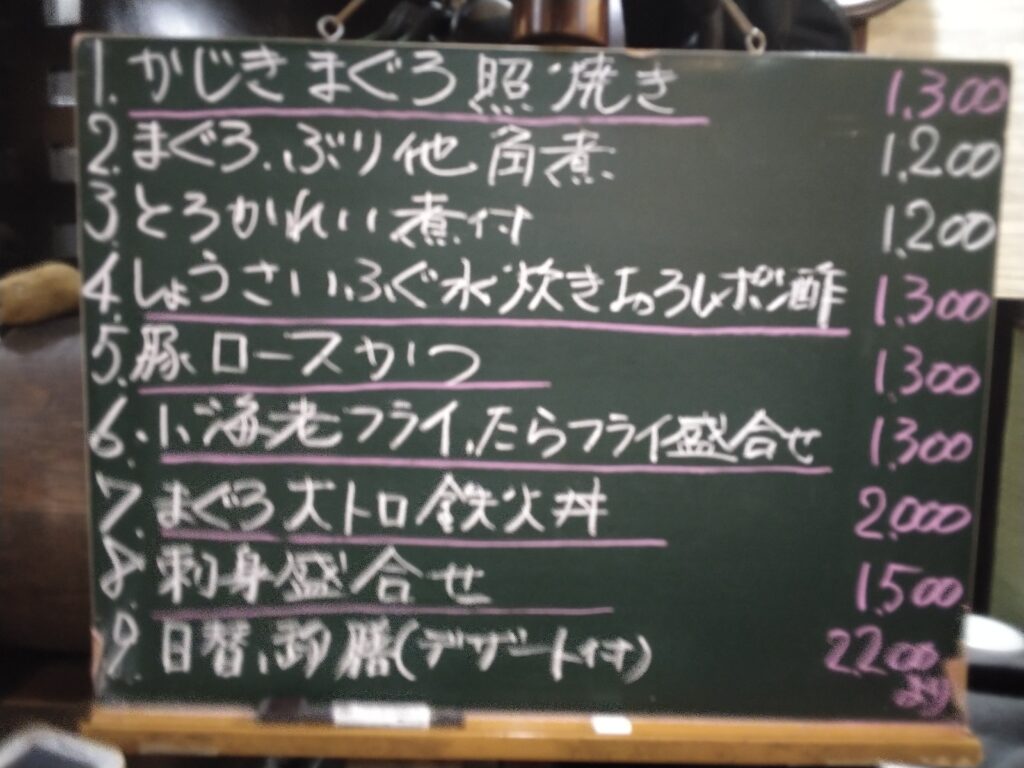 1. かじきまぐろ照焼き 1,300
2. まぐろ、ぶり他角煮 1,200
3. とろかれい煮付 1,200
4. しょうさいふぐ水炊きおろしポン酢 1,300
5. 豚ロースかつ 1,300
6. 小海老フライ、たらフライ盛合せ 1,300
7. まぐろ大トロ鉄火丼 2,000
8 刺身盛合せ 1,500
9 日替、御膳(デザート付) 2200
より